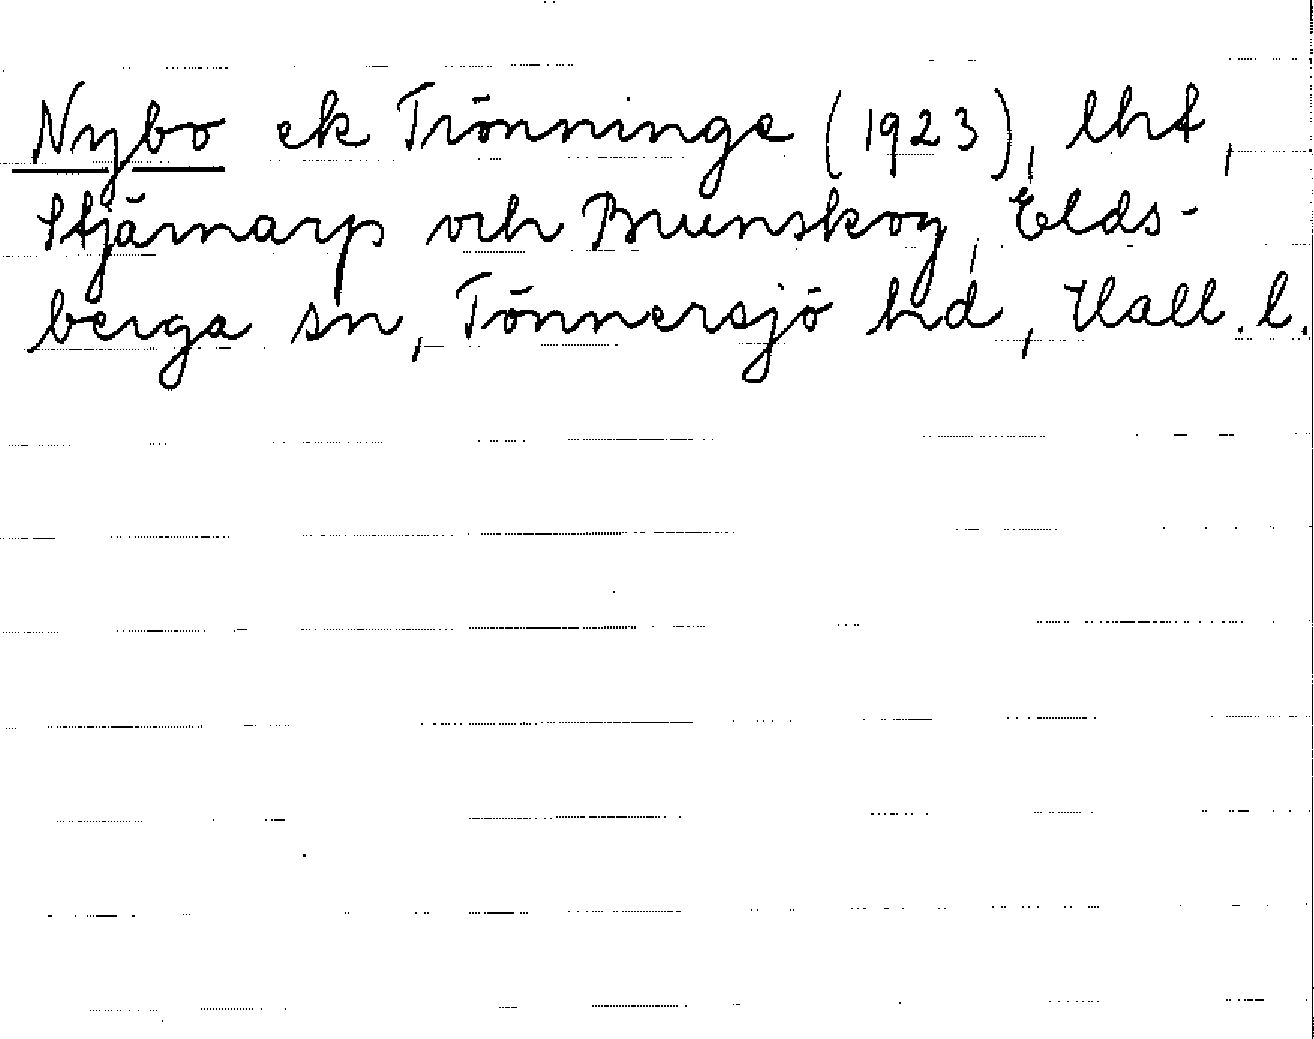 Nybo ek Trönninge (1923), lht,
Stjärnarp och Brunskog, Elds-
berga sn, Tönnersjö hd, Hall. l.